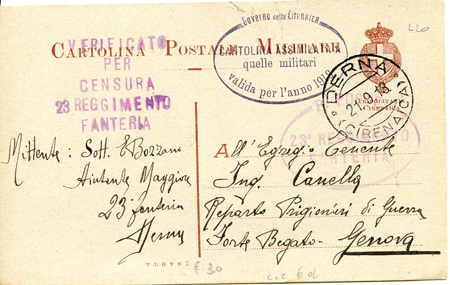 CARTOLINA POSTALE MILITARE
VERIFICATO
PER
CENSURA
23 REGGIMENTO
FANTERIA
Governo della Cirenaica
CARTOLINA ASSIMILATA A
quelle militari
valida per l'anno 191
DERNA
21.9.18
(CIRENAICA)
TRIPOLITANIA
CIRENAICA
23° REGGIMENTO
FANTERIA
L20
Mittente: Sott. E Bozzano
Aiutante Maggiore
23 fanteria
Derna
All'Egregio Tenente
Ing. Canella
Reparto Prigionieri di Guerra
Forte Begato - Genova
£ 30